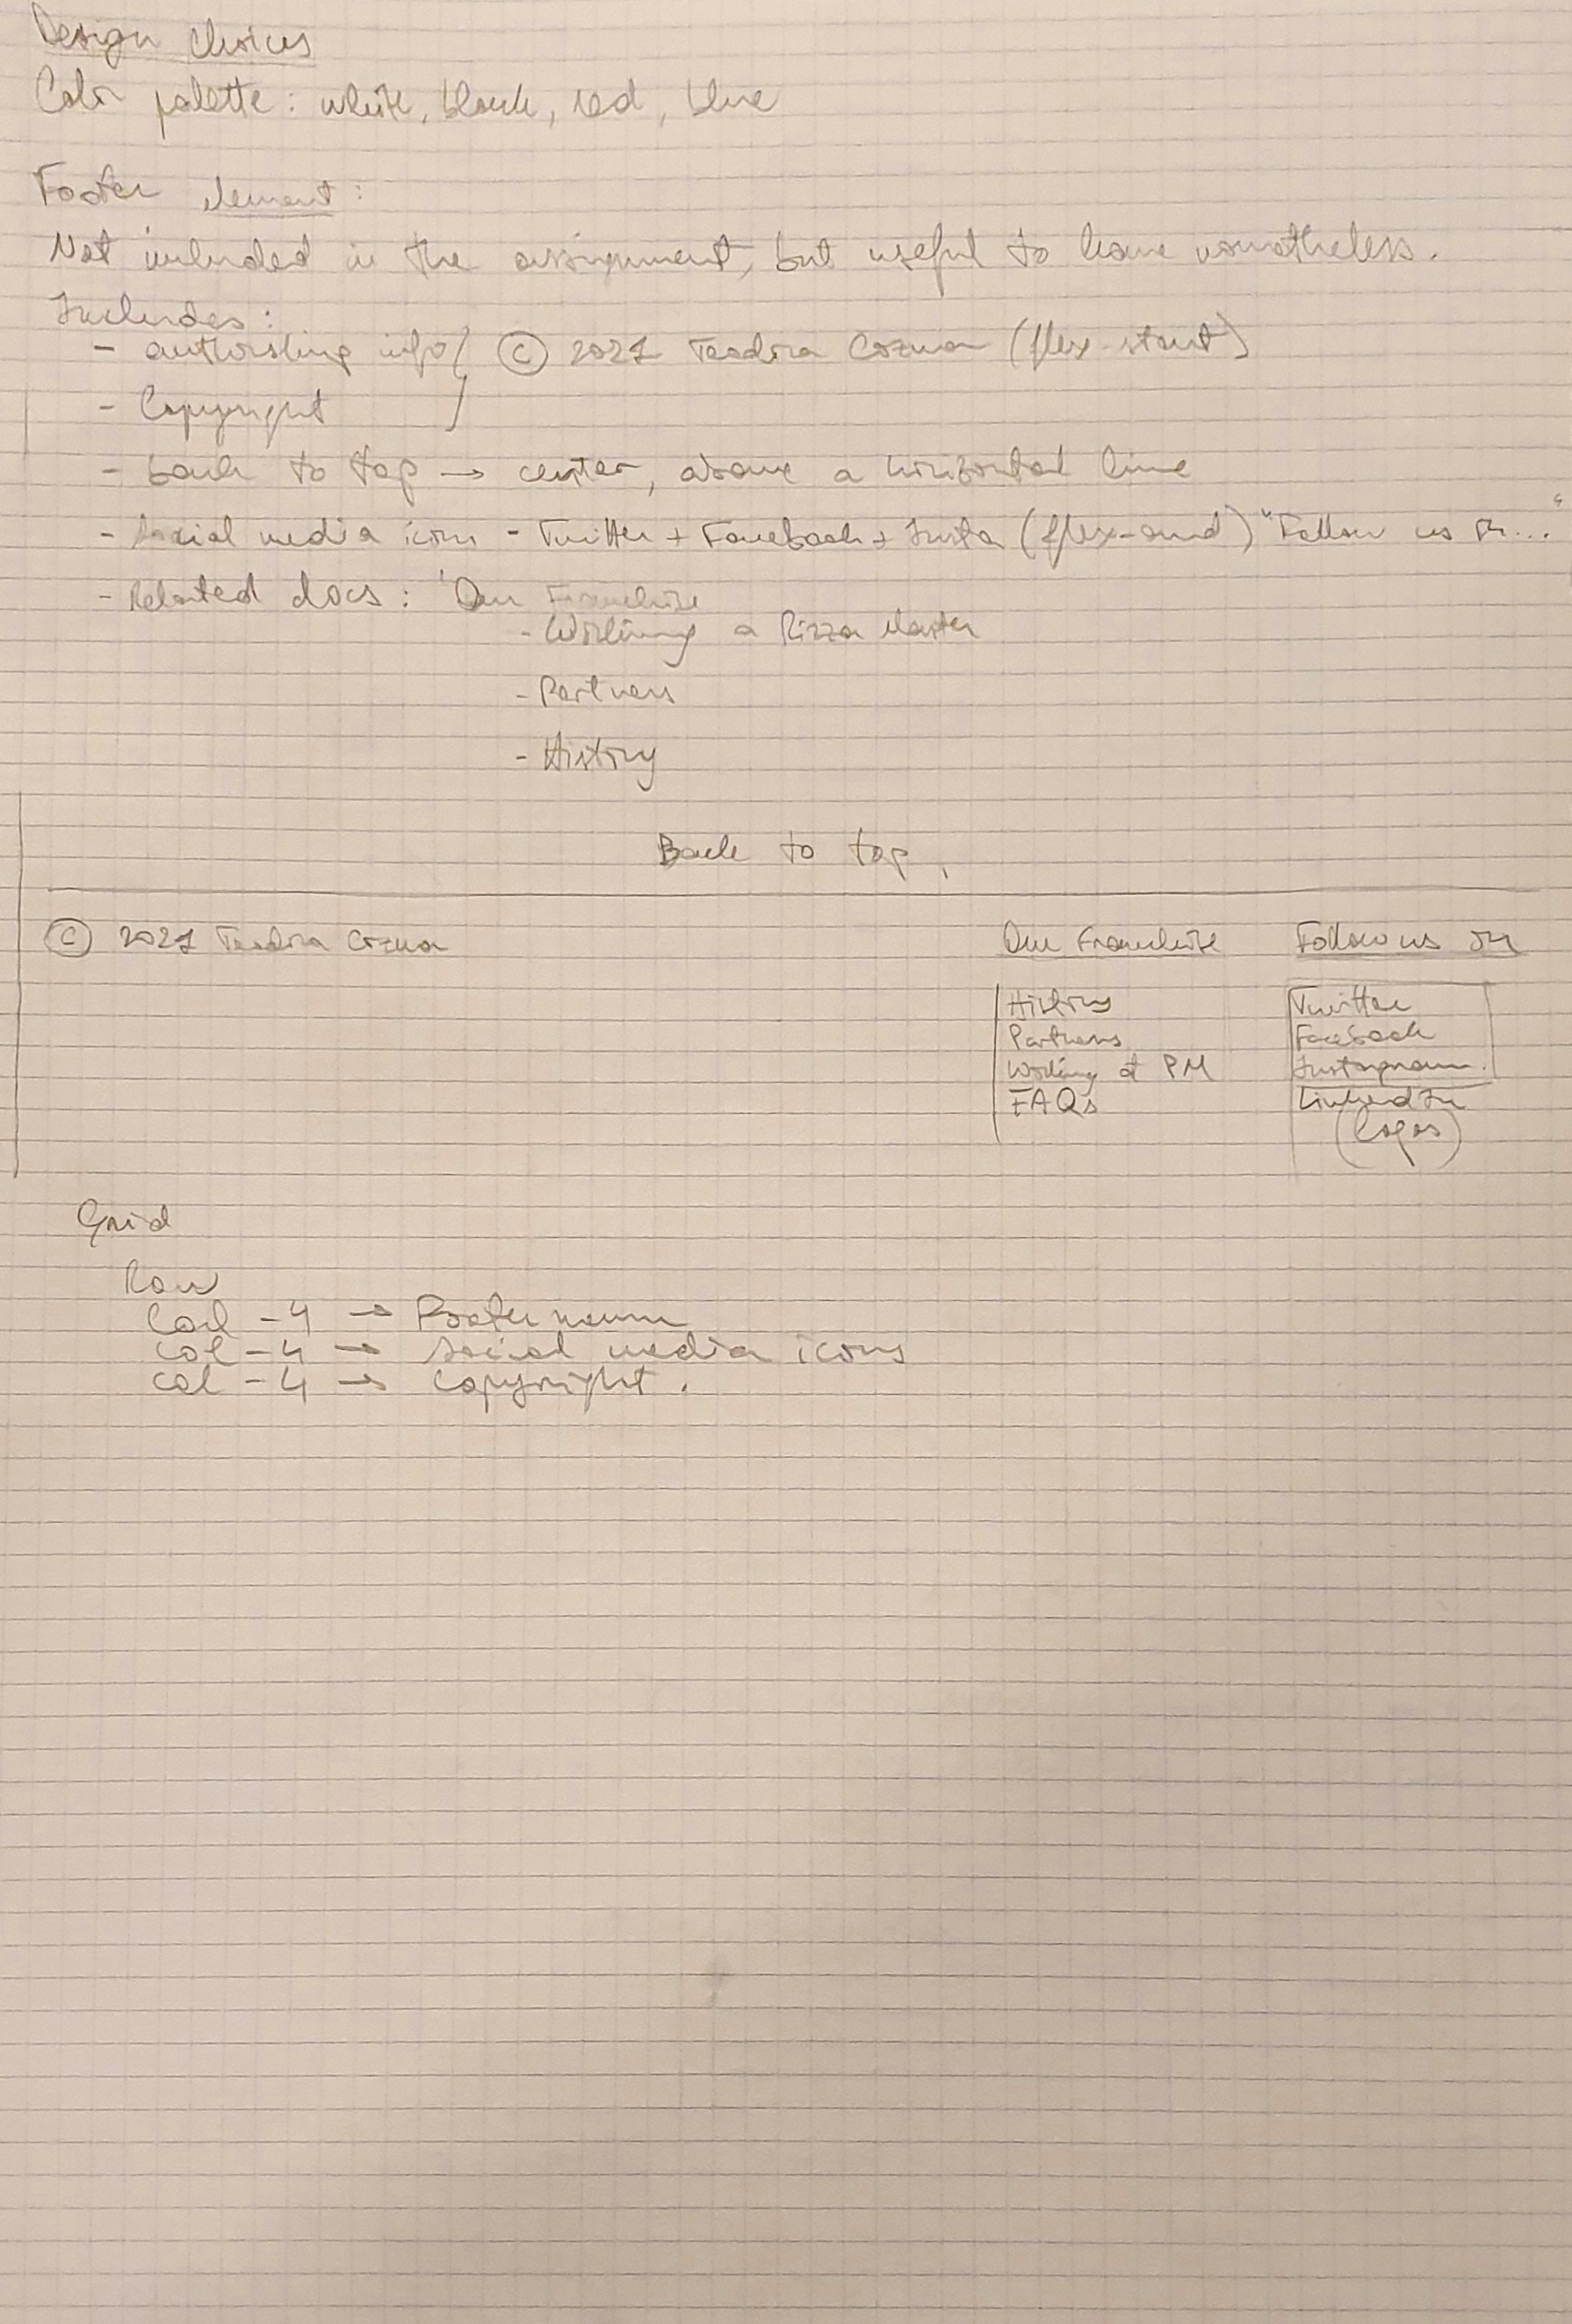 Design choices
Color palette: white, black, red, blue
Footer element:
Not included in the assignment, but useful to have nonetheless.
Includes:
- authorship info } © 2021 Teodora Cozma (flex-start)
- Copyright
- back to top → center, above a horizontal line
- Social media icons - Twitter + Facebook + Insta (flex-end) "Follow us on..."
- Related docs: 'Our Franchise
- Working a Pizza Master
- Partners
- History
Back to top
© 2021 Teodora Cozma
Our Franchise
History
Partners
Working at PM
FAQs
Follow us on
Twitter
Facebook
Instagram
LinkedIn
(logos)
Grid
Row
Col - 4 → Footer menu
col - 4 → social media icons
col - 4 → copyright.